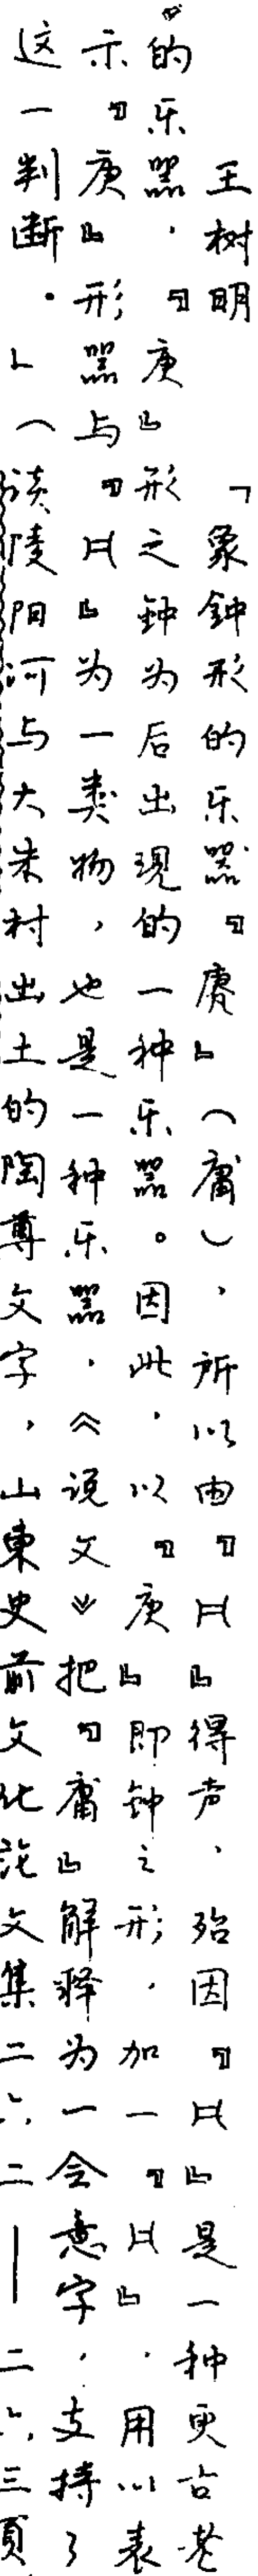 王树明　「象鐘形的乐器『庚』（庸），所以由『𠔼』得声，殆因『𠔼』是一种更古老
的乐器，『庚』形之鐘为后出现的一种乐器。因此，以『庚』即钟之形，加一『𠔼』，用以表
示『庚』形器与『𠔼』为一类物，也是一种乐器，《说文》把『庸』解释为一会意字，支持了
这一判断。」（谈陵阳河与大朱村出土的陶尊文字，山東史前文化论文集二六二—二六三頁